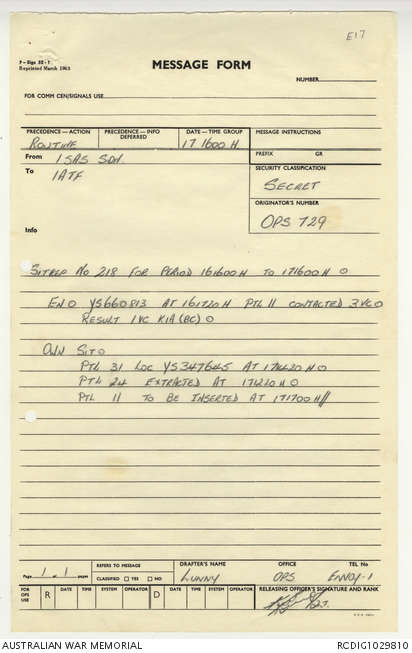 E17
F—Sigs 52-1
Reprinted March 1963
MESSAGE FORM
NUMBER
FOR COMM CEN/SIGNALS USE
PRECEDENCE—ACTION PRECEDENCE—INFO DEFERRED DATE—TIME GROUP MESSAGE INSTRUCTIONS
ROUTINE 171600H
From 1 SAS SQN PREFIX GR
To 1ATF SECURITY CLASSIFICATION
SECRET
ORIGINATOR'S NUMBER
OPS 729
Info
SITREP NO 218 FOR PERIOD 161600H TO 171600H O
EN O YS660813 AT 161720H PTL 11 CONTACTED 3 VC O
RESULT 1 VC KIA (BC) O
OWN SIT O
PTL 31 LOC YS347645 AT H O
PTL 24 EXTRACTED AT H O
PTL 11 TO BE INSERTED AT 171700H//
Page 1 of 1 pages REFERS TO MESSAGE DRAFTER'S NAME OFFICE TEL No
CLASSIFIED YES NO LUNNY OPS
FOR OPS USE R DATE TIME SYSTEM OPERATOR D DATE TIME SYSTEM OPERATOR RELEASING OFFICER'S SIGNATURE AND RANK
AUSTRALIAN WAR MEMORIAL RCDIG1029810